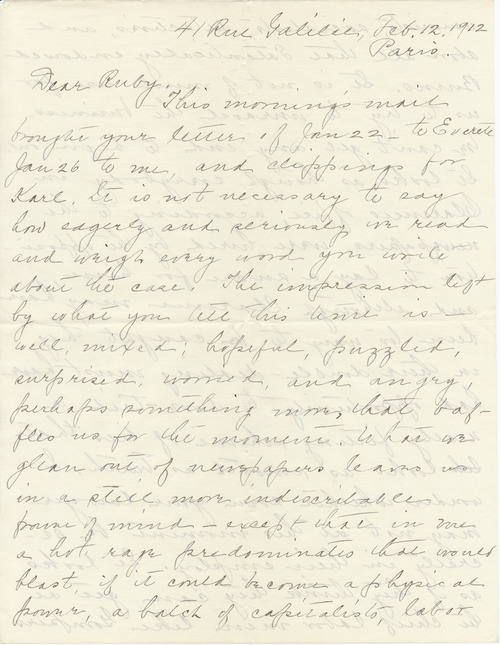 41 Rue Galilée, Feb. 12. 1912
Paris.
Dear Ruby.
This morning's mail
bought your letter of Jan 22 - to Everett
Jan 26 to me, and clippings for
Karl. It is not necessary to say
how eagerly and seriously we read
and weigh every word you write
about the case. The impression left
by what you tell this time is
well, mixed; hopeful, puzzled,
surprised, worried, and angry,
perhaps something more, that baf-
fles us for the moment. What we
glean out of newspapers leaves us
in a still more indiscribable
frame of mind - except that in me
a hot rage predominates that would
blast, if it could become a physical
power, a batch of capitalists, labor